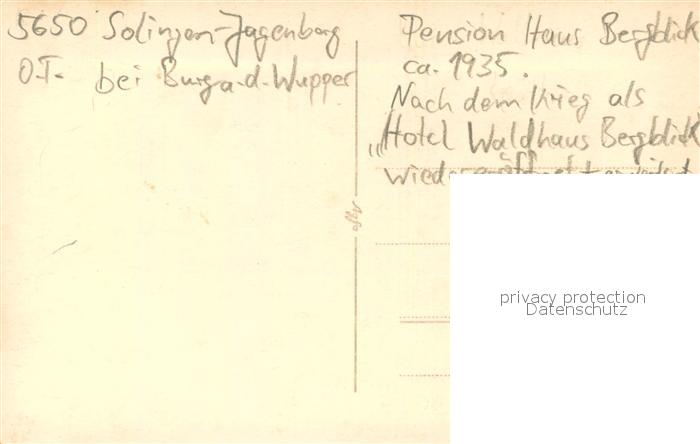 5650 Solingen-Jagenberg
O.T. bei Burg a.d. Wupper
Pension Haus Bergblick
ca. 1935.
Nach dem Krieg als
"Hotel Waldhaus Bergblick
wiedereröffnet
privacy protection
Datenschutz